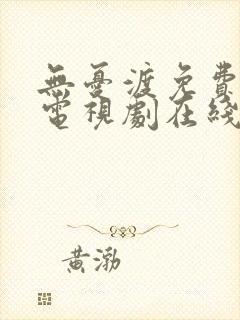 無憂渡免費
電視劇在綫
黃渤